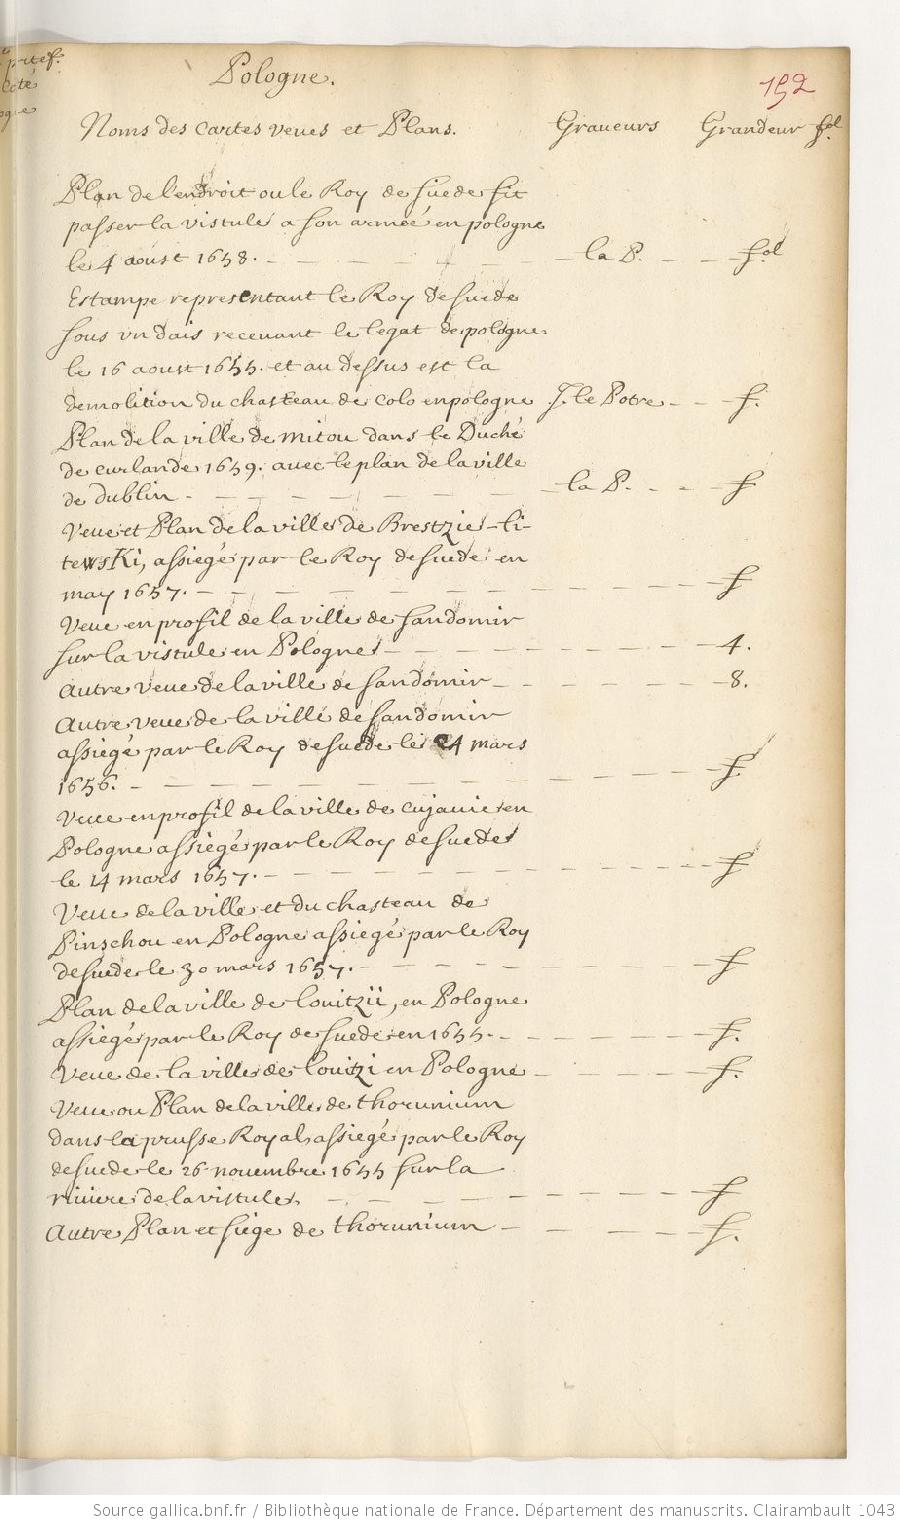 Pologne.
152
Noms des cartes veues et Plans. Graueurs Grandeur fol
Plan de l'endroit ou le Roy de suede fit
passer la vistule a son armée en pologne
le 4 aoust 1658. la P. fol
Estampe representant le Roy de suede
sous vn dais receuant le legat de pologne
le 16 aoust 1655. et au dessus est la
demolition du chasteau de colo en pologne J. le Potre f.
Plan de la ville de mitou dans le Duché
de curlande 1659. auec le plan de la ville
de dublin. la P. f
Veue et Plan de la ville de Brestzie-li-
tewsKi, assiegé par le Roy de suede en
may 1657. f
Veue en profil de la ville de sandomir
sur la vistule en Pologne 4.
autre veue de la ville de sandomir 8.
autre veue de la ville de sandomir
assiegé par le Roy de suede le 24 mars
1656. f
Veue en profil de la ville de cujauie en
Pologne assiegé par le Roy de suede
le 14 mars 1657. f
Veue de la ville et du chasteau de
Pinschou en Pologne assiegé par le Roy
de suede le 30 mars 1657. f
Plan de la ville de louitzii, en Pologne
assiegé par le Roy de suede en 1655. f.
Veue de la ville de louitzi en Pologne f.
Veue ou Plan de la ville de thorunium
dans la prusse Royal, assiegé par le Roy
de suede le 26 nouembre 1655 sur la
riuiere de la vistule, f
autre Plan et siege de thorunium f.
Source gallica.bnf.fr / Bibliothèque nationale de France. Département des manuscrits. Clairambault 1043